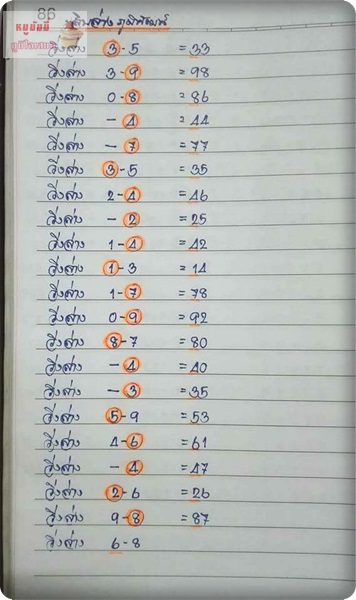 86
วิ่งล่าง ภูมิพัฒน์
วิ่งล่าง 3-5 = 33
วิ่งล่าง 3-9 = 98
วิ่งล่าง 0-8 = 86
วิ่งล่าง -4 = 44
วิ่งล่าง -7 = 77
วิ่งล่าง 3-5 = 35
วิ่งล่าง 2-4 = 46
วิ่งล่าง -2 = 25
วิ่งล่าง 1-4 = 42
วิ่งล่าง 1-3 = 14
วิ่งล่าง 1-7 = 78
วิ่งล่าง 0-9 = 92
วิ่งล่าง 8-7 = 80
วิ่งล่าง -4 = 40
วิ่งล่าง -3 = 35
วิ่งล่าง 5-9 = 53
วิ่งล่าง 4-6 = 61
วิ่งล่าง -4 = 47
วิ่งล่าง 2-6 = 26
วิ่งล่าง 9-8 = 87
วิ่งล่าง 6-8